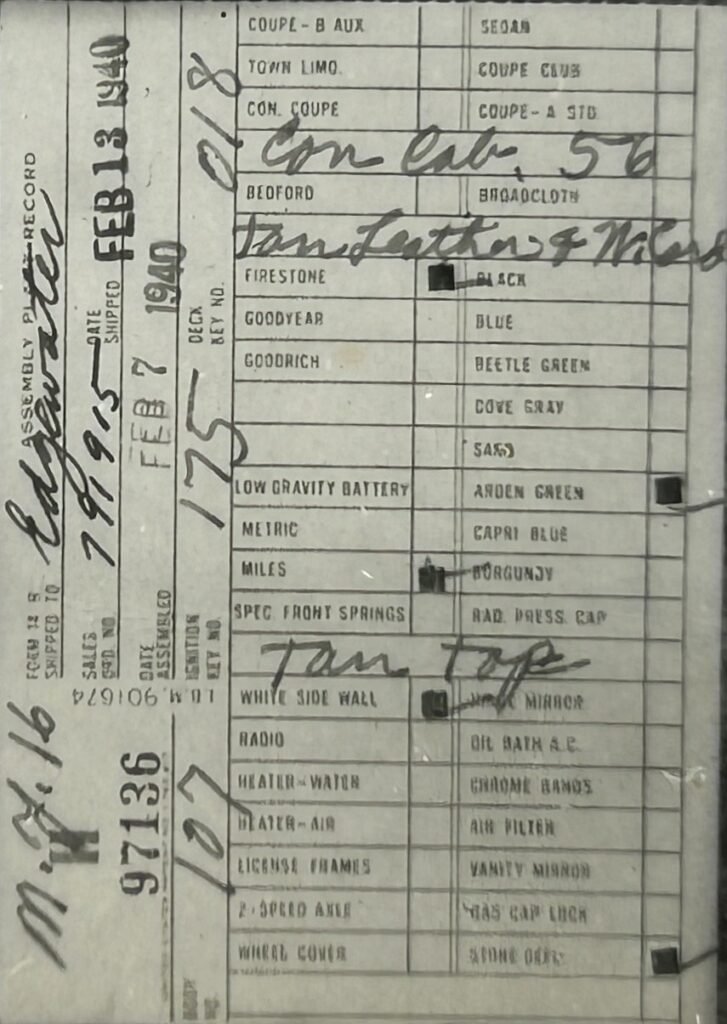 COUPE-B AUX SEDAN
TOWN LIMO. COUPE CLUB
CON. COUPE COUPE-A STD
Con Cab. 56
BEDFORD BROADCLOTH
Tan Leather & W. Cord
FIRESTONE BLACK
GOODYEAR BLUE
GOODRICH BEETLE GREEN
COVE GRAY
SAND
LOW GRAVITY BATTERY ARDEN GREEN
METRIC CAPRI BLUE
MILES BURGUNDY
SPEC. FRONT SPRINGS RAD. PRESS. CAP
Tan Top
WHITE SIDE WALL MIRROR
RADIO OIL BATH A.C.
HEATER-WATER CHROME BANDS
HEATER-AIR AIR FILTER
LICENSE FRAMES VANITY MIRROR
2-SPEED AXLE GAS CAP LOCK
WHEEL COVER STONE DEFL.
ASSEMBLY PLANT RECORD
SHIPPED TO Edgewater
SALES ORD. NO. 791915 DATE SHIPPED FEB 13 1940
DATE ASSEMBLED FEB 7 1940
IGNITION KEY NO. 175 DECK KEY NO. 018
I.B.M. 901674
M.Y. 16
H
97136
107